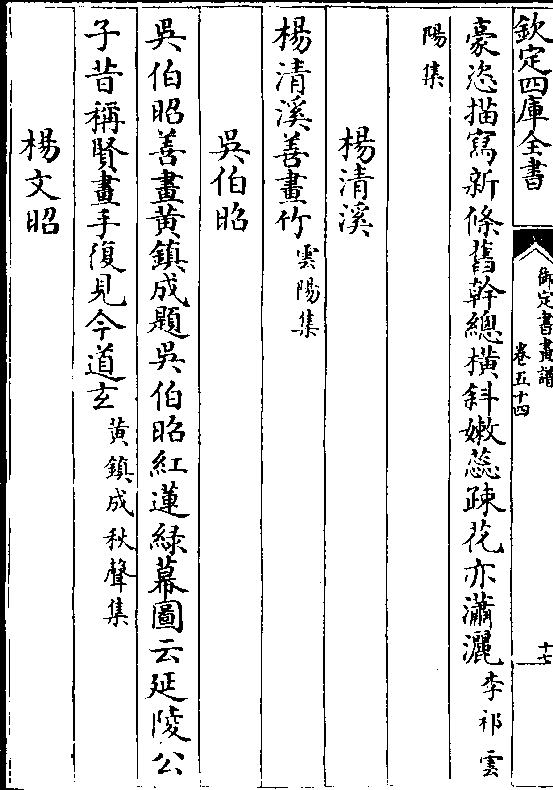 欽定四庫全書
御定書畫譜
卷五十四
十七
豪恣描寫新條舊幹總橫斜嫩蕊疎花亦瀟灑李祁雲
陽集
楊清溪
楊清溪善畫竹雲陽集
吳伯昭
吳伯昭善畫黃鎮成題吳伯昭紅蓮綠幕圖云延陵公
子昔稱賢畫手復見今道玄黃鎮成秋聲集
楊文昭